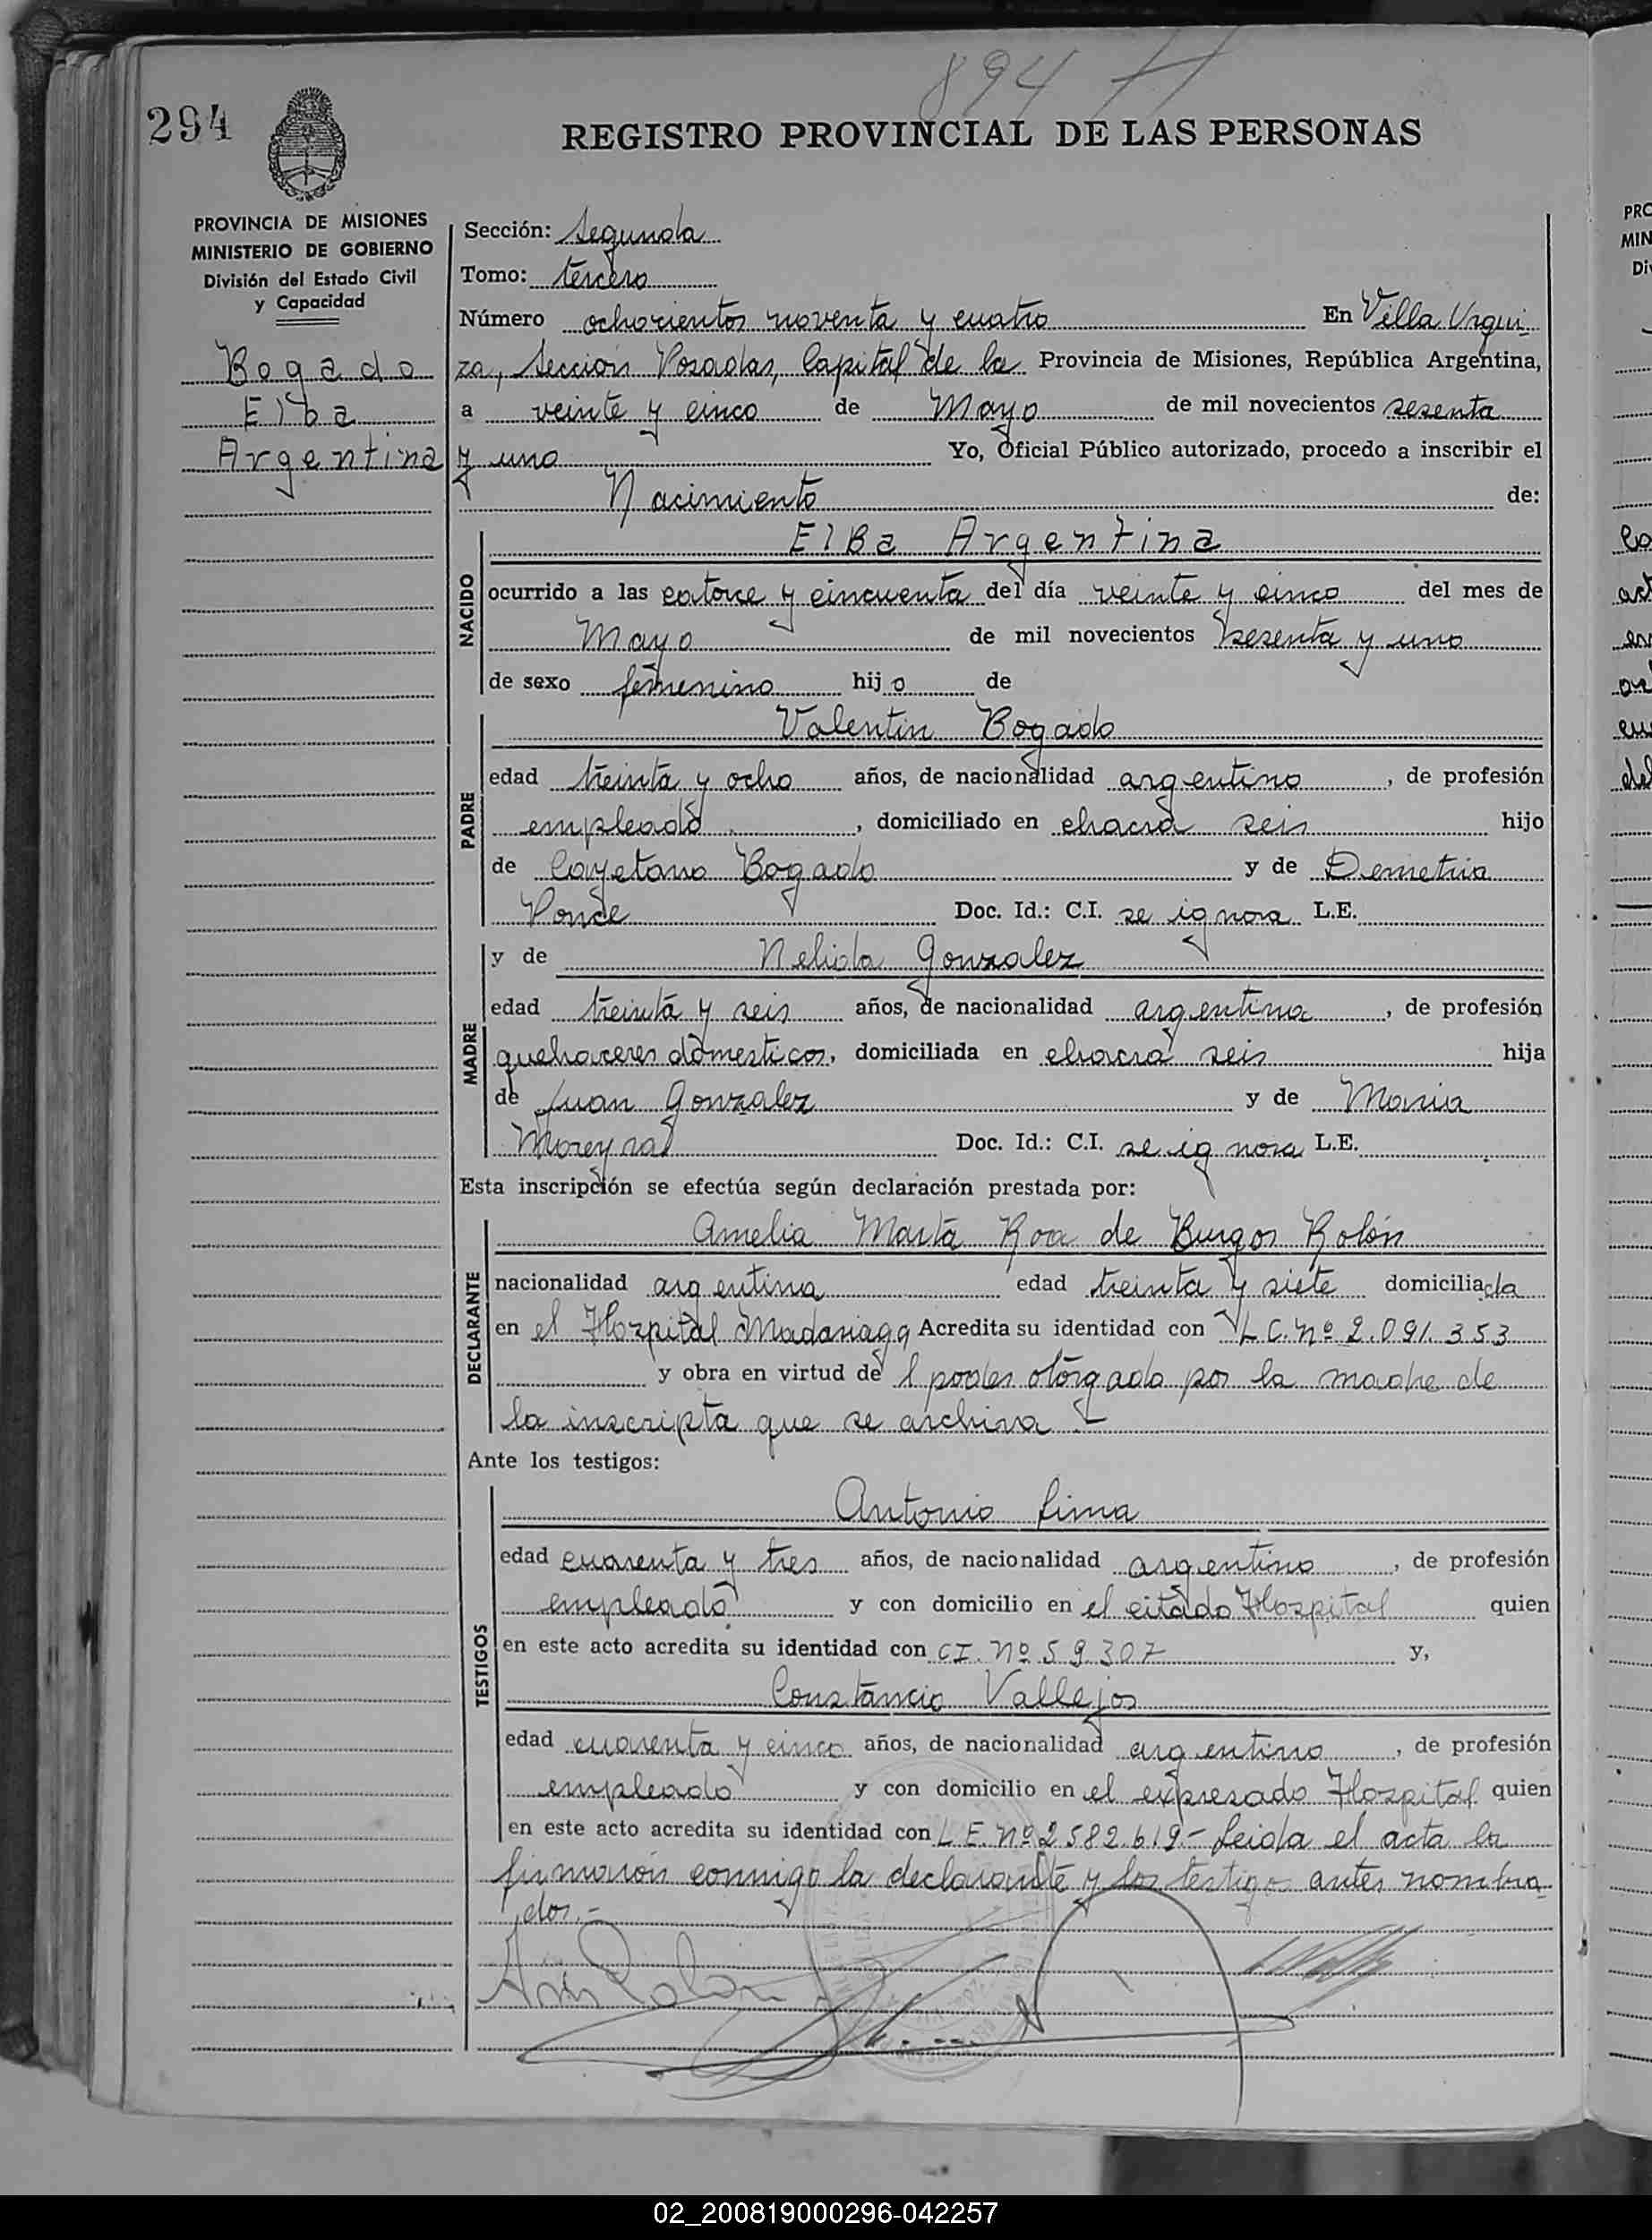 894 H
294
REGISTRO PROVINCIAL DE LAS PERSONAS
PROVINCIA DE MISIONES
MINISTERIO DE GOBIERNO
División del Estado Civil
y Capacidad
Bogado
Elba
Argentina
Sección: segunda
Tomo: tercero
Número ochocientos noventa y cuatro En Villa Urqui-
za, Sección Posadas, Capital de la Provincia de Misiones, República Argentina,
a veinte y cinco de Mayo de mil novecientos sesenta
y uno Yo, Oficial Público autorizado, procedo a inscribir el
Nacimiento de:
NACIDO
Elba Argentina
ocurrido a las catorce y cincuenta del día veinte y cinco del mes de
Mayo de mil novecientos sesenta y uno
de sexo femenino hijo de
PADRE
Valentin Bogado
edad treinta y ocho años, de nacionalidad argentino, de profesión
empleado, domiciliado en chacra seis hijo
de Cayetano Bogado y de Demetria
Ponce Doc. Id.: C.I. se ignora L.E.
MADRE
y de Nelida Gonzalez
edad treinta y seis años, de nacionalidad argentina, de profesión
quehaceres domesticos, domiciliada en chacra seis hija
de Juan Gonzalez y de Maria
Moreyra Doc. Id.: C.I. se ignora L.E.
Esta inscripción se efectúa según declaración prestada por:
DECLARANTE
Amelia Marta Roa de Burgos Rolón
nacionalidad argentina edad treinta y siete domiciliada
en el Hospital Madariaga Acredita su identidad con L.C. Nº 2.091.353
y obra en virtud del poder otorgado por la madre de
la inscripta que se archiva.-
Ante los testigos:
TESTIGOS
Antonio Lima
edad cuarenta y tres años, de nacionalidad argentino, de profesión
empleado y con domicilio en el citado Hospital quien
en este acto acredita su identidad con CI. Nº 59.307 y,
Constancio Vallejos
edad cuarenta y cinco años, de nacionalidad argentino, de profesión
empleado y con domicilio en el expresado Hospital quien
en este acto acredita su identidad con L.E. Nº 2.582.619.- Leida el acta la
firmaron conmigo la declarante y los testigos antes nombra-
dos.-
02_200819000296-042257